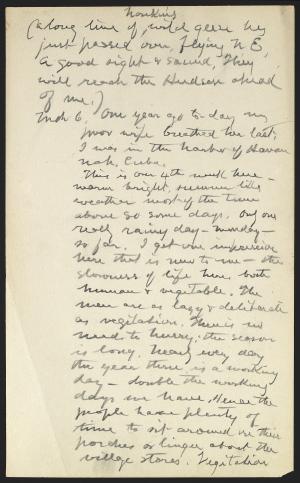 honking
(a long line of wild geese has
just passed over, flying N E,
a good sight & sound, They
will reach the Hudson ahead
of me.)
Mch 6. One year ago to-day my
poor wife breathed her last.
I was in the harbor of Havan
nah, Cuba.
This is our 4th week here –
warm bright, summer like
weather most of the time
above 80 some days. Only one
really rainy day – Monday –
so far. I get one impression
here that is new to me – the
slowness of life here both
human & vegetable. The
men are as lazy & deliberate
as vegitation. There is no
need to hurry; the season
is long. Nearly every day
the year there is a working
day – double the working
days we have. Hence the
people have plenty of
time to sit around on their
porches or linger about the
village stores. Vegitation